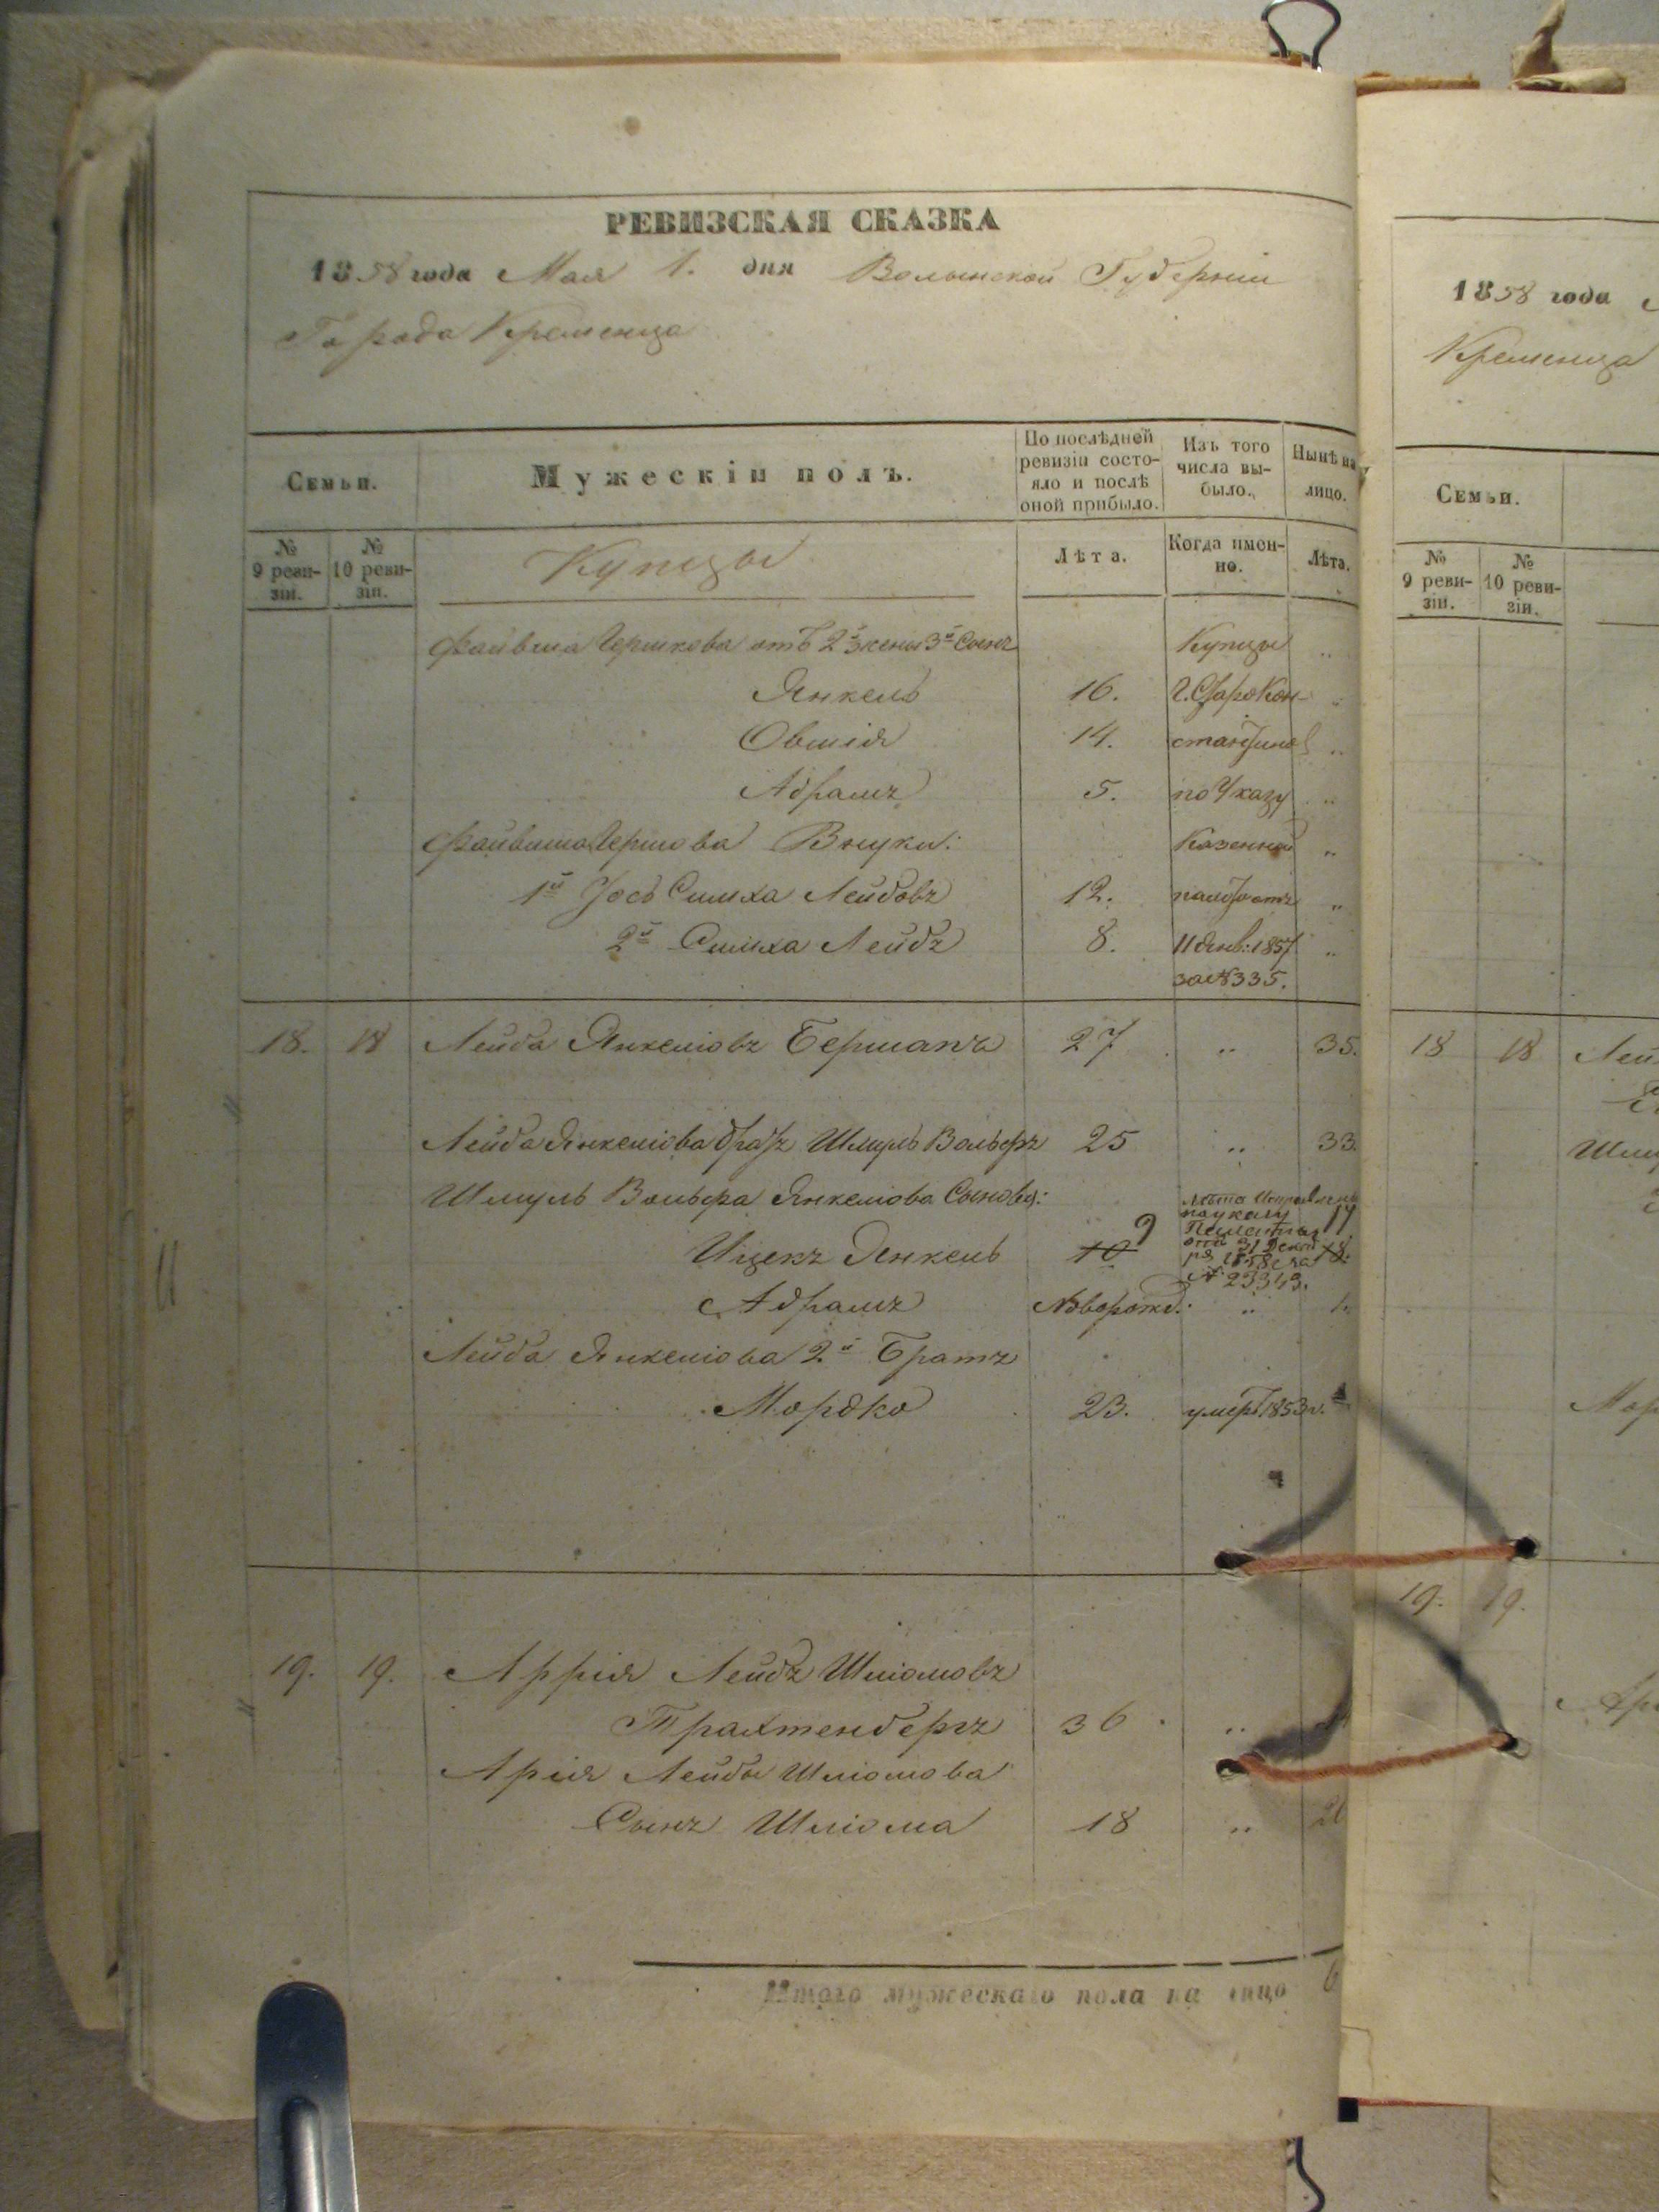 РЕВИЗСКАЯ СКАЗКА
1858 года Мая 1. дня Волынской Губерніи
Города Кременца
Семьи.
Мужескій полъ.
По послѣдней ревизіи состояло и послѣ оной прибыло.
Изъ того числа выбыло.
Нынѣ на лицо.
№ 9 ревизіи.
№ 10 ревизіи.
Купцы
Лѣта.
Когда именно.
Лѣта.
Файвиша Гершкова отъ 2й жены 3й Сынъ Купцы „
Янкель 16. г. Старокон- „
Овшія 14. стантинов „
Абрамъ 5. по Указу „
Файвиша Гершова Внуки: Казенной „
1й Іось Симха Лейбовъ 12. палаты отъ „
2й Симха Лейбъ 8. 11 Янв: 1857 „
за № 335.
18. 18 Лейба Янкеліовъ Берманъ 27 „ 35.
Лейба Янкеліова братъ Шмуль Вольфъ 25 „ 33.
Шмуль Вольфа Янкеліова Сыновья:
Лѣта Исправлены
по указу 17
Ицекъ Янкель 10 9 18.
№ 23343.
Абрамъ Новорожд. „ 1.
Лейба Янкеліова 2й Братъ
Мордко 23. умеръ 1853 г.
19. 19. Аррія Лейбъ Шліомовъ
Трахтенбергъ 36 „
Арія Лейбы Шліомова
Сынъ Шліома 18 „ 26
Итого мужескаго пола на лицо 6
1858 года
Кременца
Семьи.
№ 9 ревизіи.
№ 10 ревизіи.
18 18 Лей
Шму
Мор
19. 19.
Ар